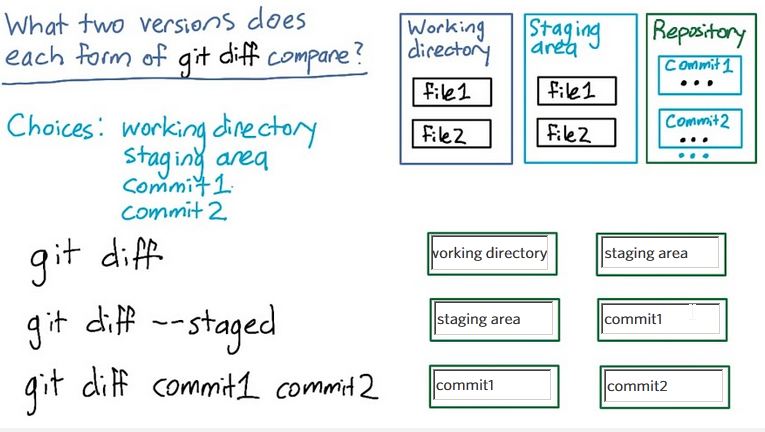 What two versions does
each form of git diff compare?
Choices: working directory
staging area
commit1
commit2
Working
directory
file1
file2
Staging
area
file1
file2
Repository
Commit1
...
Commit2
...
...
git diff
working directory
staging area
git diff --staged
staging area
commit1
git diff commit1 commit2
commit1
commit2